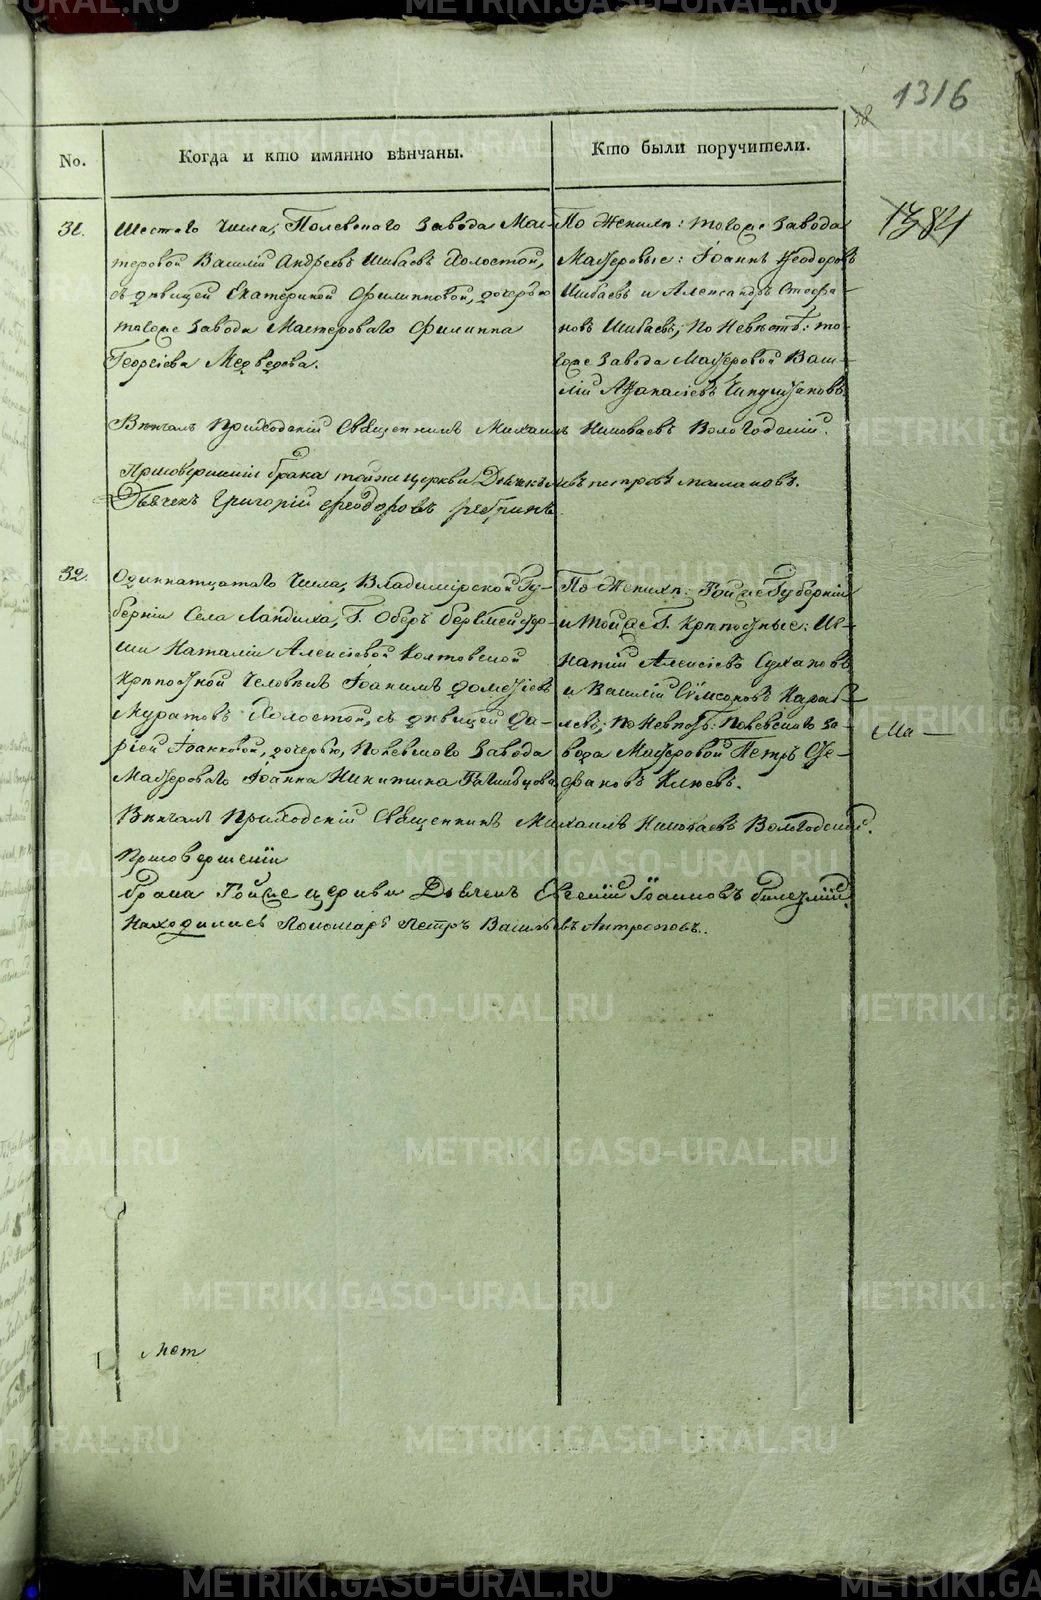 1316
38
No.
Когда и кто имянно вѣнчаны.
Кто были поручители.
1384
31.
Шестаго Числа, Полевскаго Завода Мас-
теровой Василій Андреевъ Шибаевъ Холостой,
съ дѣвицей Екатериной Филипповой, дочерью
тогоже Завода Мастероваго Филиппа
Георгіева Медведева.
По Женихѣ: тогоже Завода
Мастеровые: Іоаннъ Ѳеодоровъ
Шибаевъ и Александръ Стефа-
новъ Шибаевъ; По Невѣстѣ: то-
гоже Завода Мастеровой Васи-
лій Аѳанасіевъ
Вѣнчалъ Приходскій Священникъ Михаилъ Николаевъ Вологодскій.
Присовершеніи брака тойже церкви Дьячекъ Левъ петровъ маламовъ.
Дьячекъ Григорій Ѳеодоровъ
32.
Одиннатцатаго Числа, Владимірской Гу-
берніи Села Ландиха, Г. Оберъ бергмейстер-
ши Наталіи Алексіевой Колтовской
Крѣпостной Человѣкъ Іоакимъ
Муратовъ Холостой, съ дѣвицей Да-
рьей Іоанновой, дочерью, Полевскаго Завода
Мастероваго Іоанна Никитина
По Женихѣ: Тойже Губерніи
и тойже Г. Крѣпостные: Иг-
натій Алексіевъ Сухановъ
и Василій
По Невѣстѣ: Полевскаго За-
вода Мастеровой Петръ Сте-
фановъ Клюевъ.
Ма
Вѣнчалъ Приходскій Священникъ Михаилъ Николаевъ Вологодскій.
Присовершеніи
брака Тойже церкви Дьячекъ Евгеній Іоанновъ
находились Пономарь Петръ Васильевъ Антроповъ.
Мет
METRIKI.GASO-URAL.RU